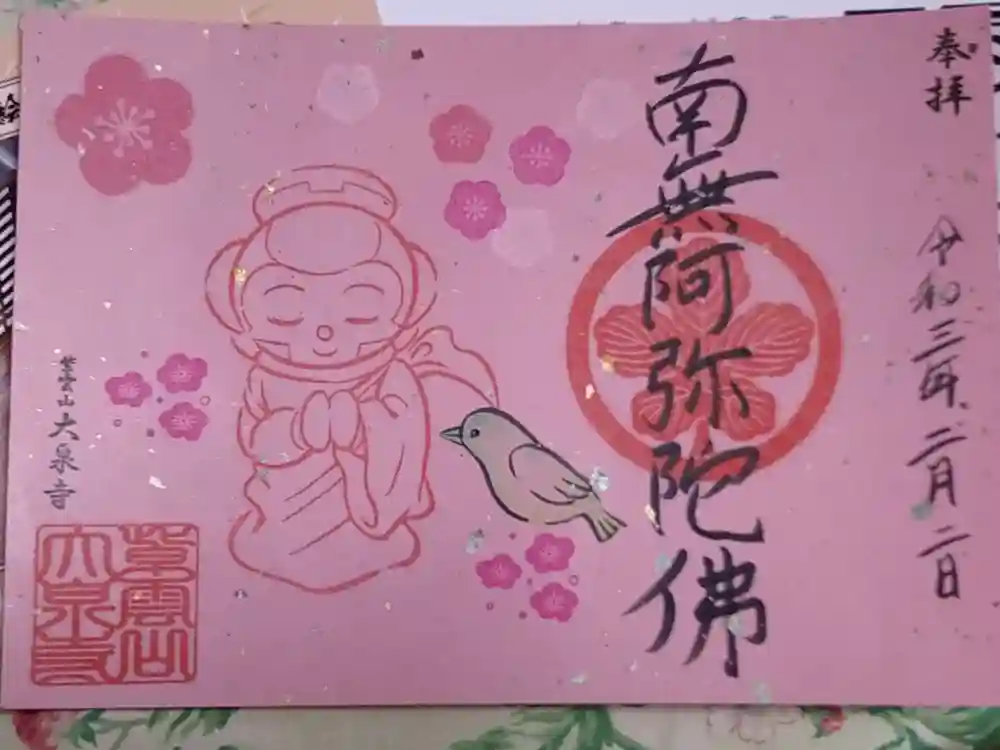 奉拝
令和三年二月二日
南無阿弥陀佛
紫雲山 大泉寺
紫雲山
大泉寺
絵